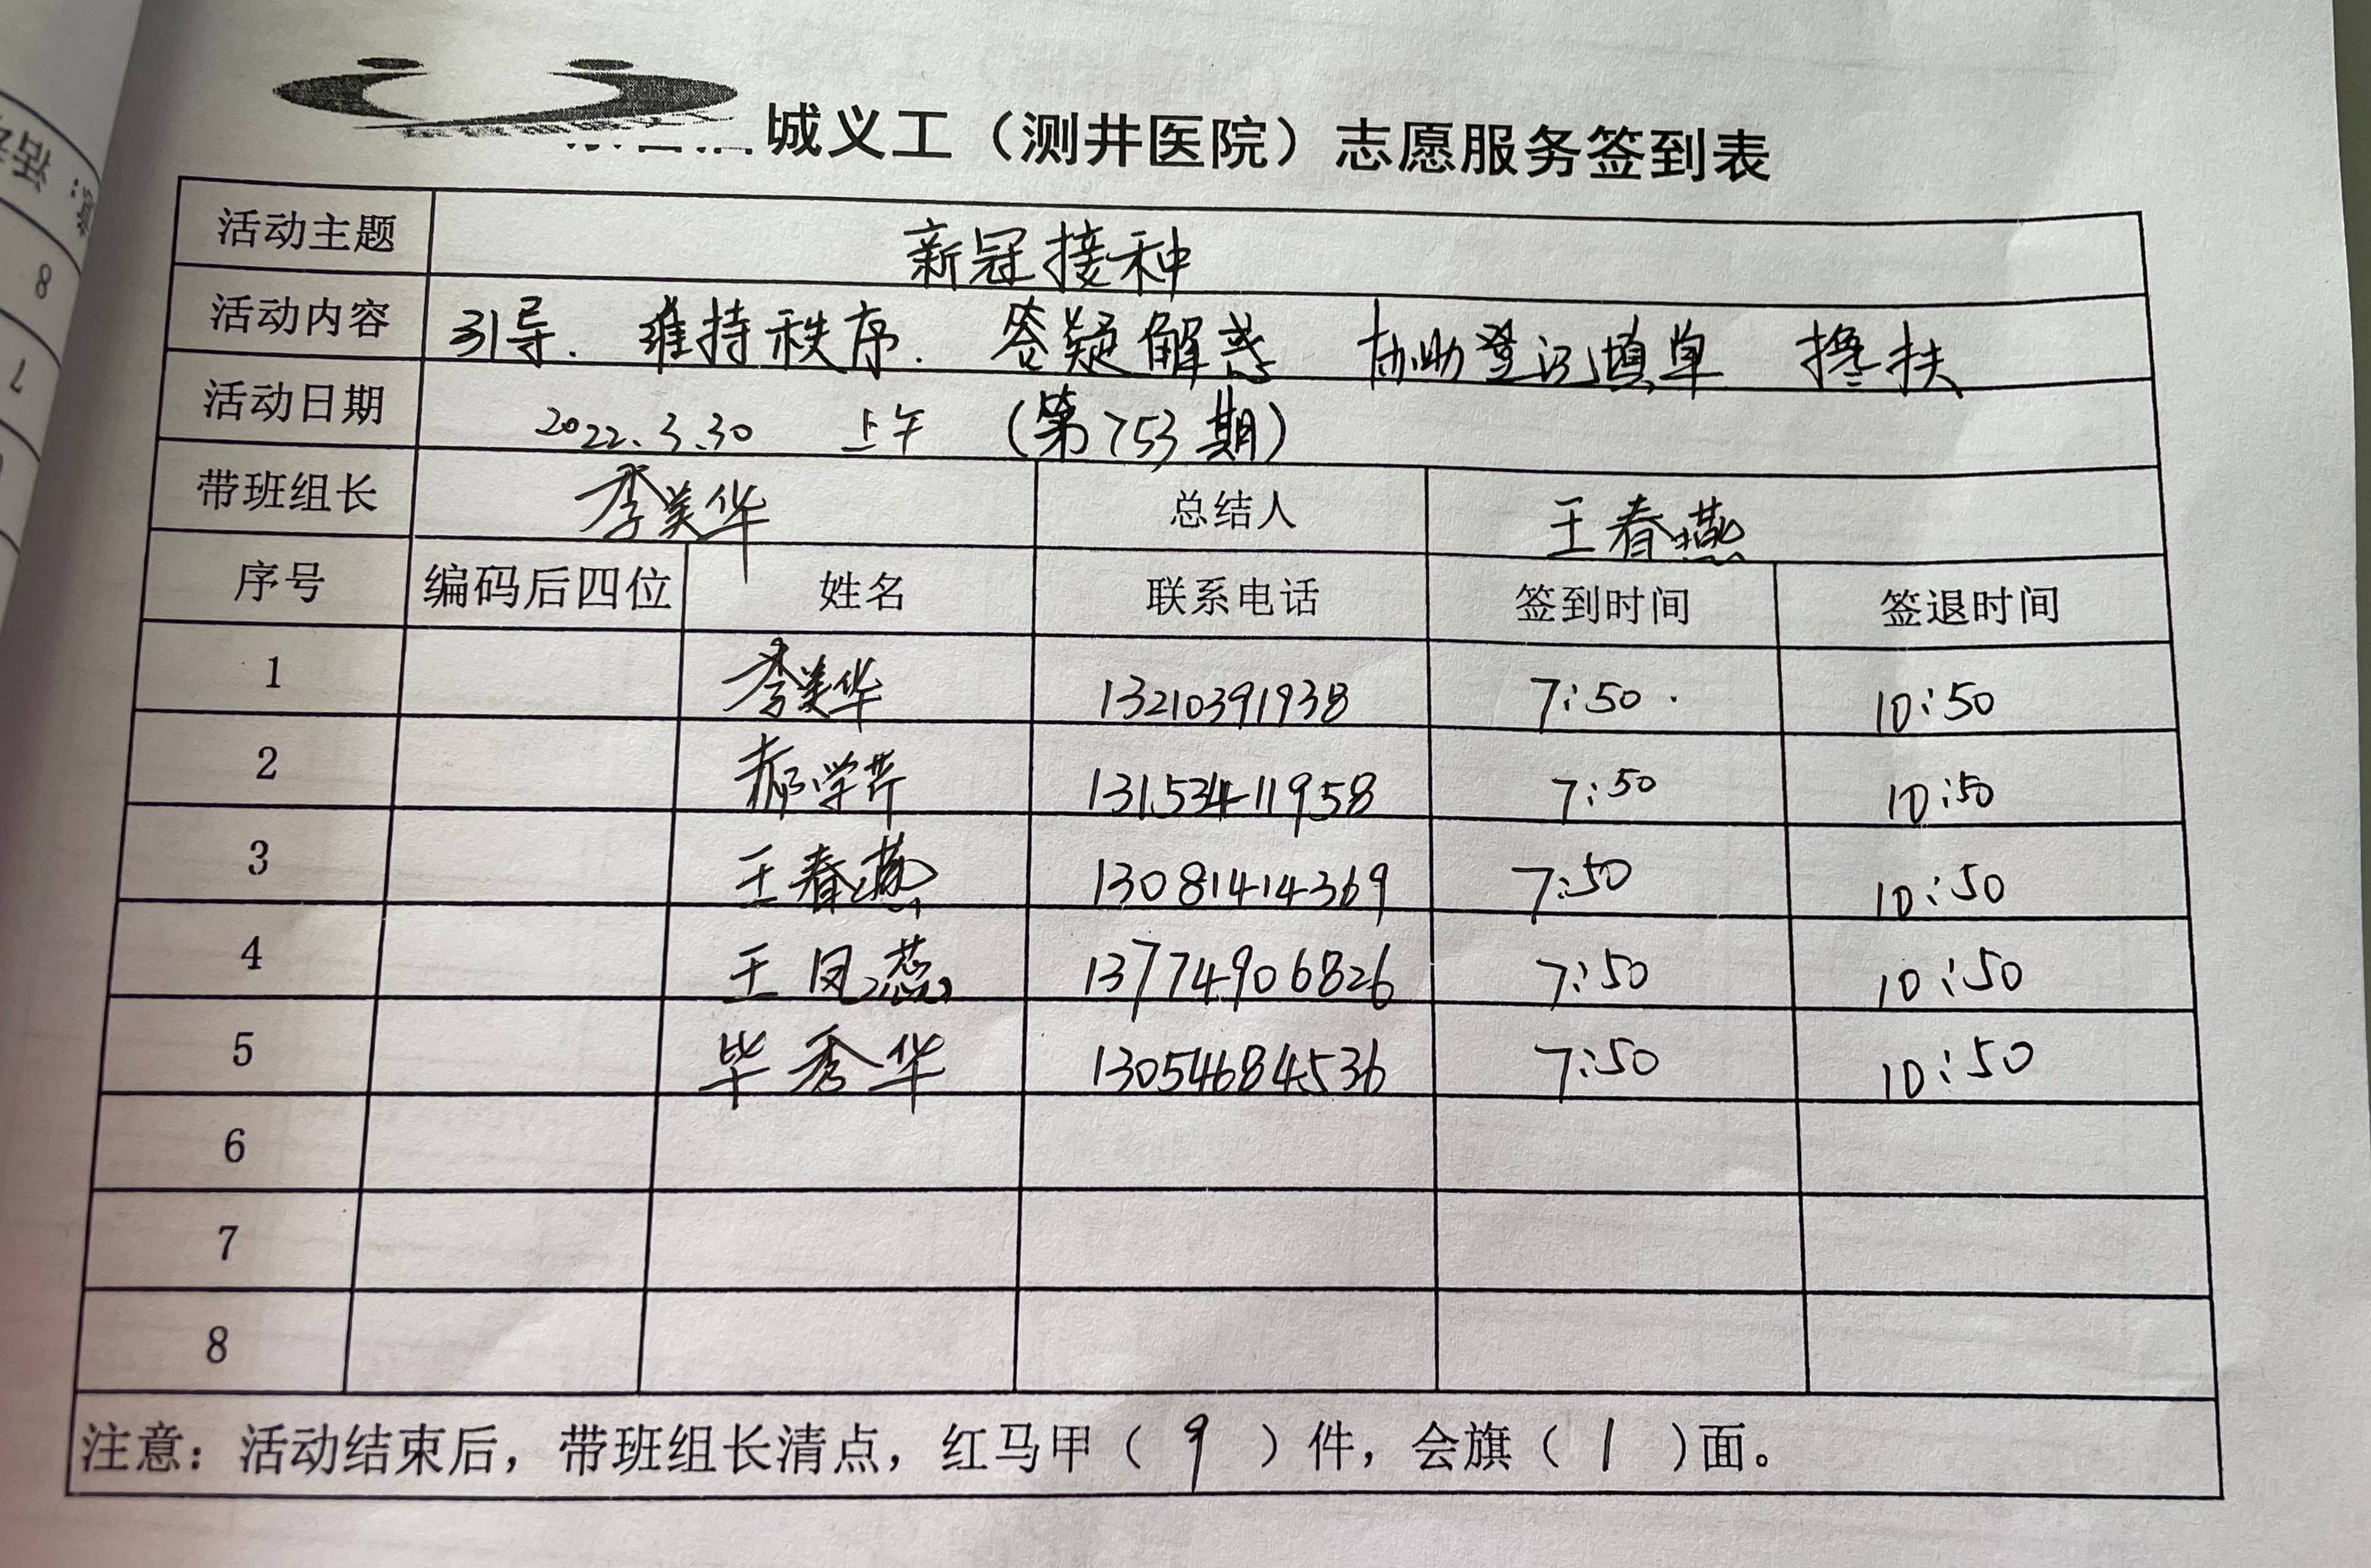 城义工（测井医院）志愿服务签到表
活动主题 新冠接种
活动内容 引导. 维持秩序. 答疑解惑 协助登记填单 搀扶
活动日期 2022.3.30 上午 （第753期）
带班组长 李美华 总结人 王春燕
序号 编码后四位 姓名 联系电话 签到时间 签退时间
1 李美华 13210391938 7:50 10:50
2 郝学芹 13153411958 7:50 10:50
3 王春燕 13081414369 7:50 10:50
4 王凤蕊 13774906826 7:50 10:50
5 毕秀华 13054684536 7:50 10:50
6
7
8
注意：活动结束后，带班组长清点，红马甲（ 9 ）件，会旗（ 1 ）面。
8
7